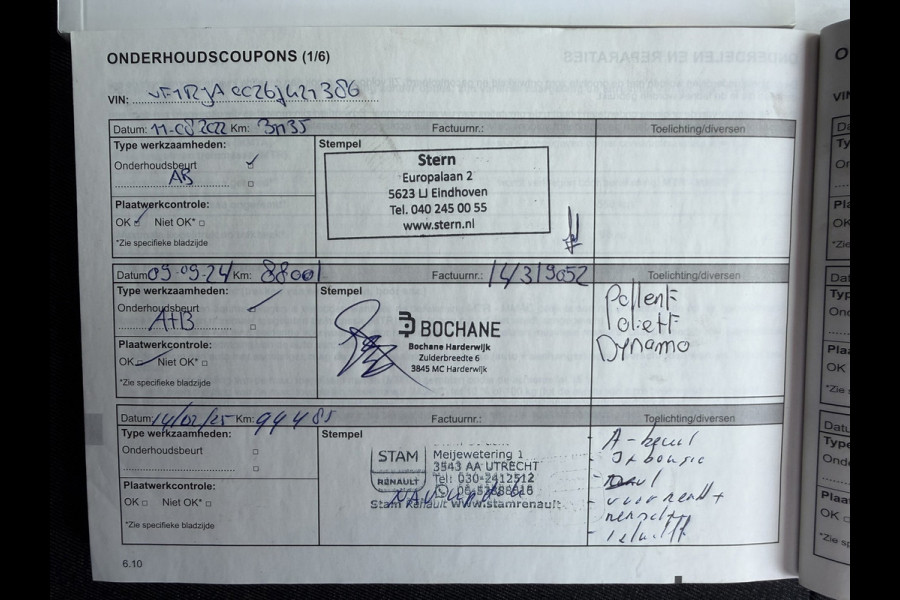 ONDERHOUDSCOUPONS (1/6)
VIN:
Datum: 11-08 2022 Km: Factuurnr.: Toelichting/diversen
Type werkzaamheden: Stempel
Onderhoudsbeurt
AB
Plaatwerkcontrole:
OK Niet OK*
*Zie specifieke bladzijde
Stern
Europalaan 2
5623 LJ Eindhoven
Tel. 040 245 00 55
www.stern.nl
Datum: 09-09-24 Km: 88001 Factuurnr.: 14319052 Toelichting/diversen
Type werkzaamheden: Stempel
Onderhoudsbeurt
A+B
Plaatwerkcontrole:
OK Niet OK*
*Zie specifieke bladzijde
BOCHANE
Bochane Harderwijk
Zuiderbreedte 6
3845 MC Harderwijk
PollenF
OlieF
Dynamo
Datum: 14/02/25 Km: 94485 Factuurnr.: Toelichting/diversen
Type werkzaamheden: Stempel
Onderhoudsbeurt
Plaatwerkcontrole:
OK Niet OK*
*Zie specifieke bladzijde
STAM
RENAULT
Meijewetering 1
3543 AA UTRECHT
Tel: 030-2412512
Stam Renault www.stamrenault
- A-beurt
6.10